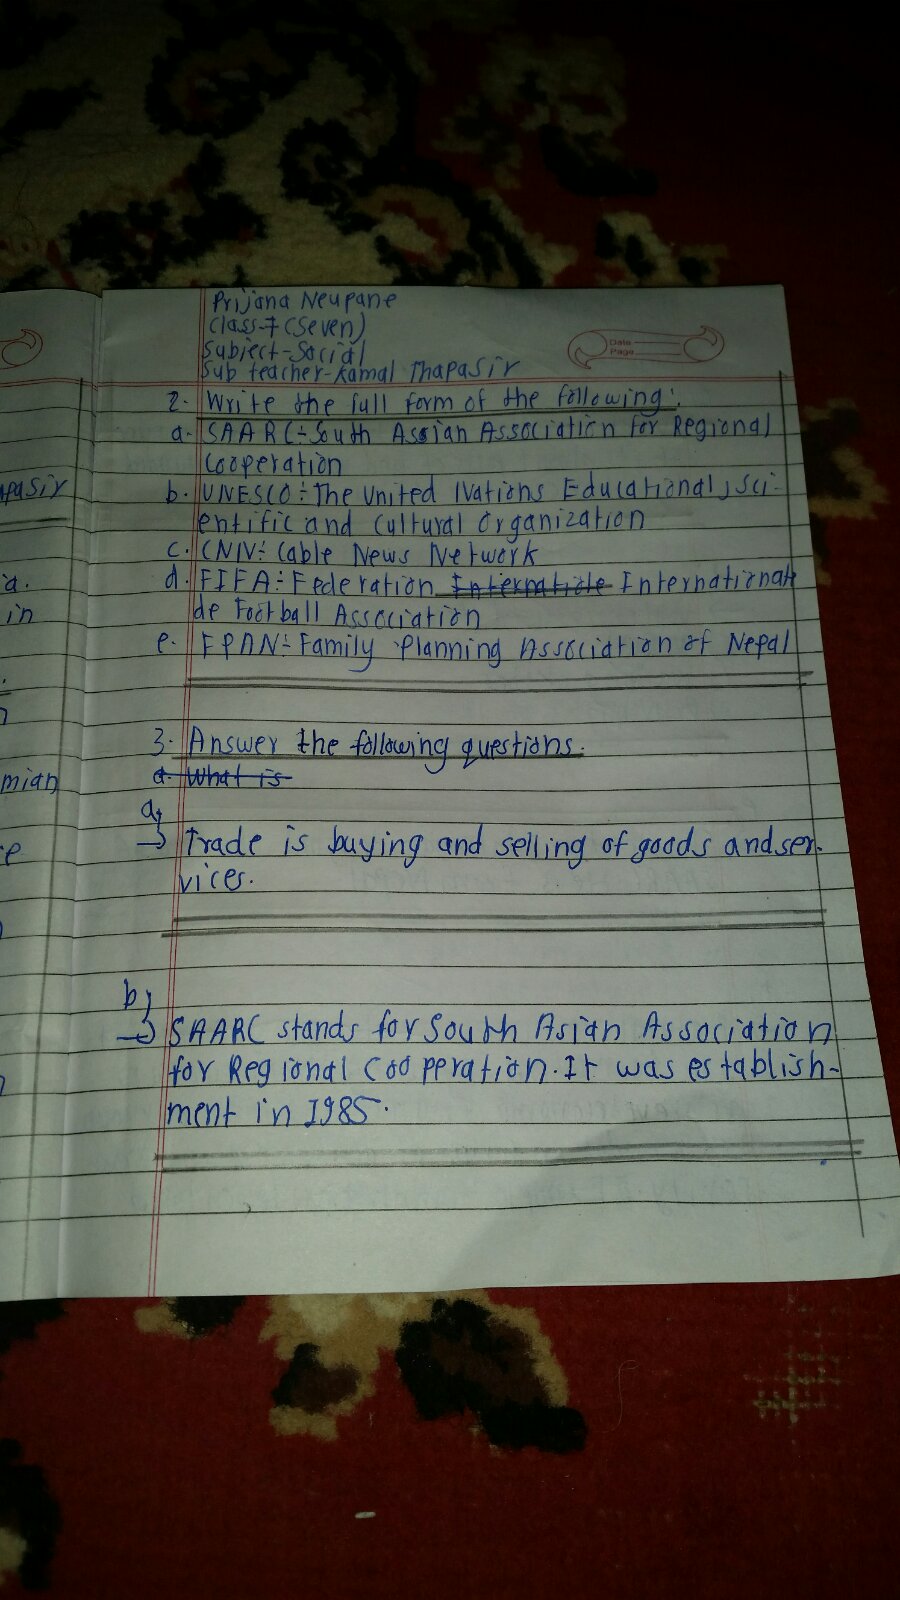 Prijana Neupane
Class-7 (Seven)
Subject-Social
Sub teacher-Kamal Thapa Sir
Date
Page
2. Write the full form of the following:
a. SAARC:-South Assian Association for Regional
Cooperation
b. UNESCO:-The United Nations Educational, Sci-
entific and Cultural Organization
c. CNN:- Cable News Network
d. FIFA:-Federation International
de Football Association
e. FPAN:-Family Planning Association of Nepal
3. Answer the following questions.
a. What is
a,
→ Trade is buying and selling of goods and ser-
vices.
b,
→ SAARC stands for South Asian Association
for Regional Cooperation. It was establish-
ment in 1985.
apa Sir
a.
in
mian
e